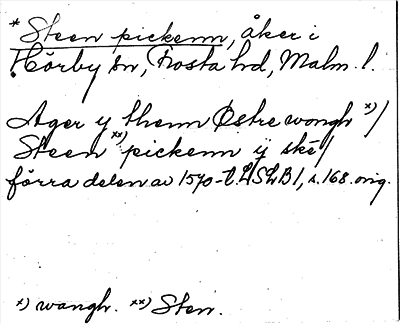 * Steen pickenn, åker i
Hörby sn, Frosta hd, Malm. l.
Ager y thenn Østre wongh x)/
Steen xx) pickenn ij ske/
förra delen av 1570-t. LSLB 1, s. 168. orig.
x) wangh. xx) Sten.